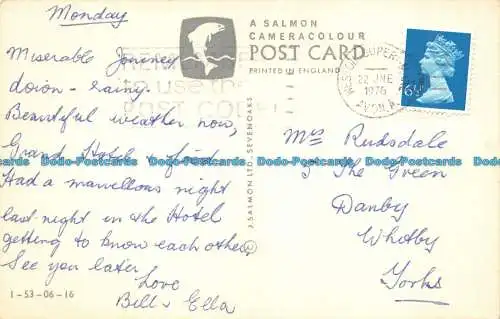 Monday
Miserable Journey
down - rainy.
Beautiful weather now,
Grand Hotel & food.
Had a marvellous night
last night in the Hotel
getting to know each other.
See you later
Love
Bill & Ella
1-53-06-16
A SALMON
CAMERACOLOUR
POST CARD
PRINTED IN ENGLAND
J. SALMON LTD. SEVENOAKS
REMEMBER
to use the
POST CODE
WESTON-SUPER-
22 JNE
1976
AVON
6½P
Mrs Rudsdale
The Green
Danby
Whitby
Yorks
Dodo-Postcards Dodo-Postcards Dodo-Postcards Dodo-Postcards